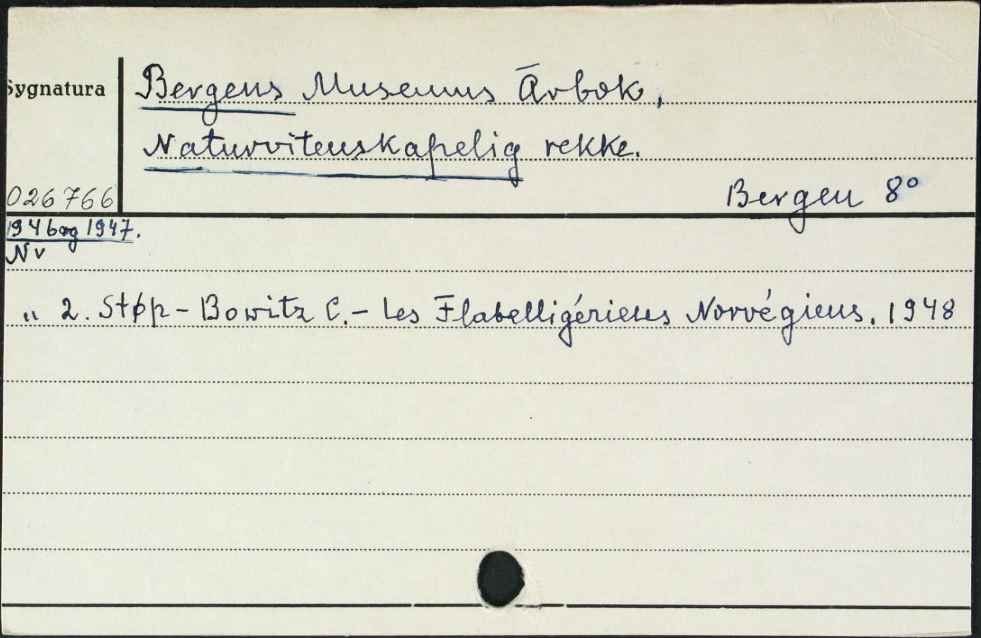 Sygnatura
Bergens Museums Ārbok,
Naturvitenskapelig rekke.
026766
Bergen 8°
1946 og 1947.
Nv
" 2. Støp-Bowitz C. - Les Flabelligériens Norvégiens. 1948